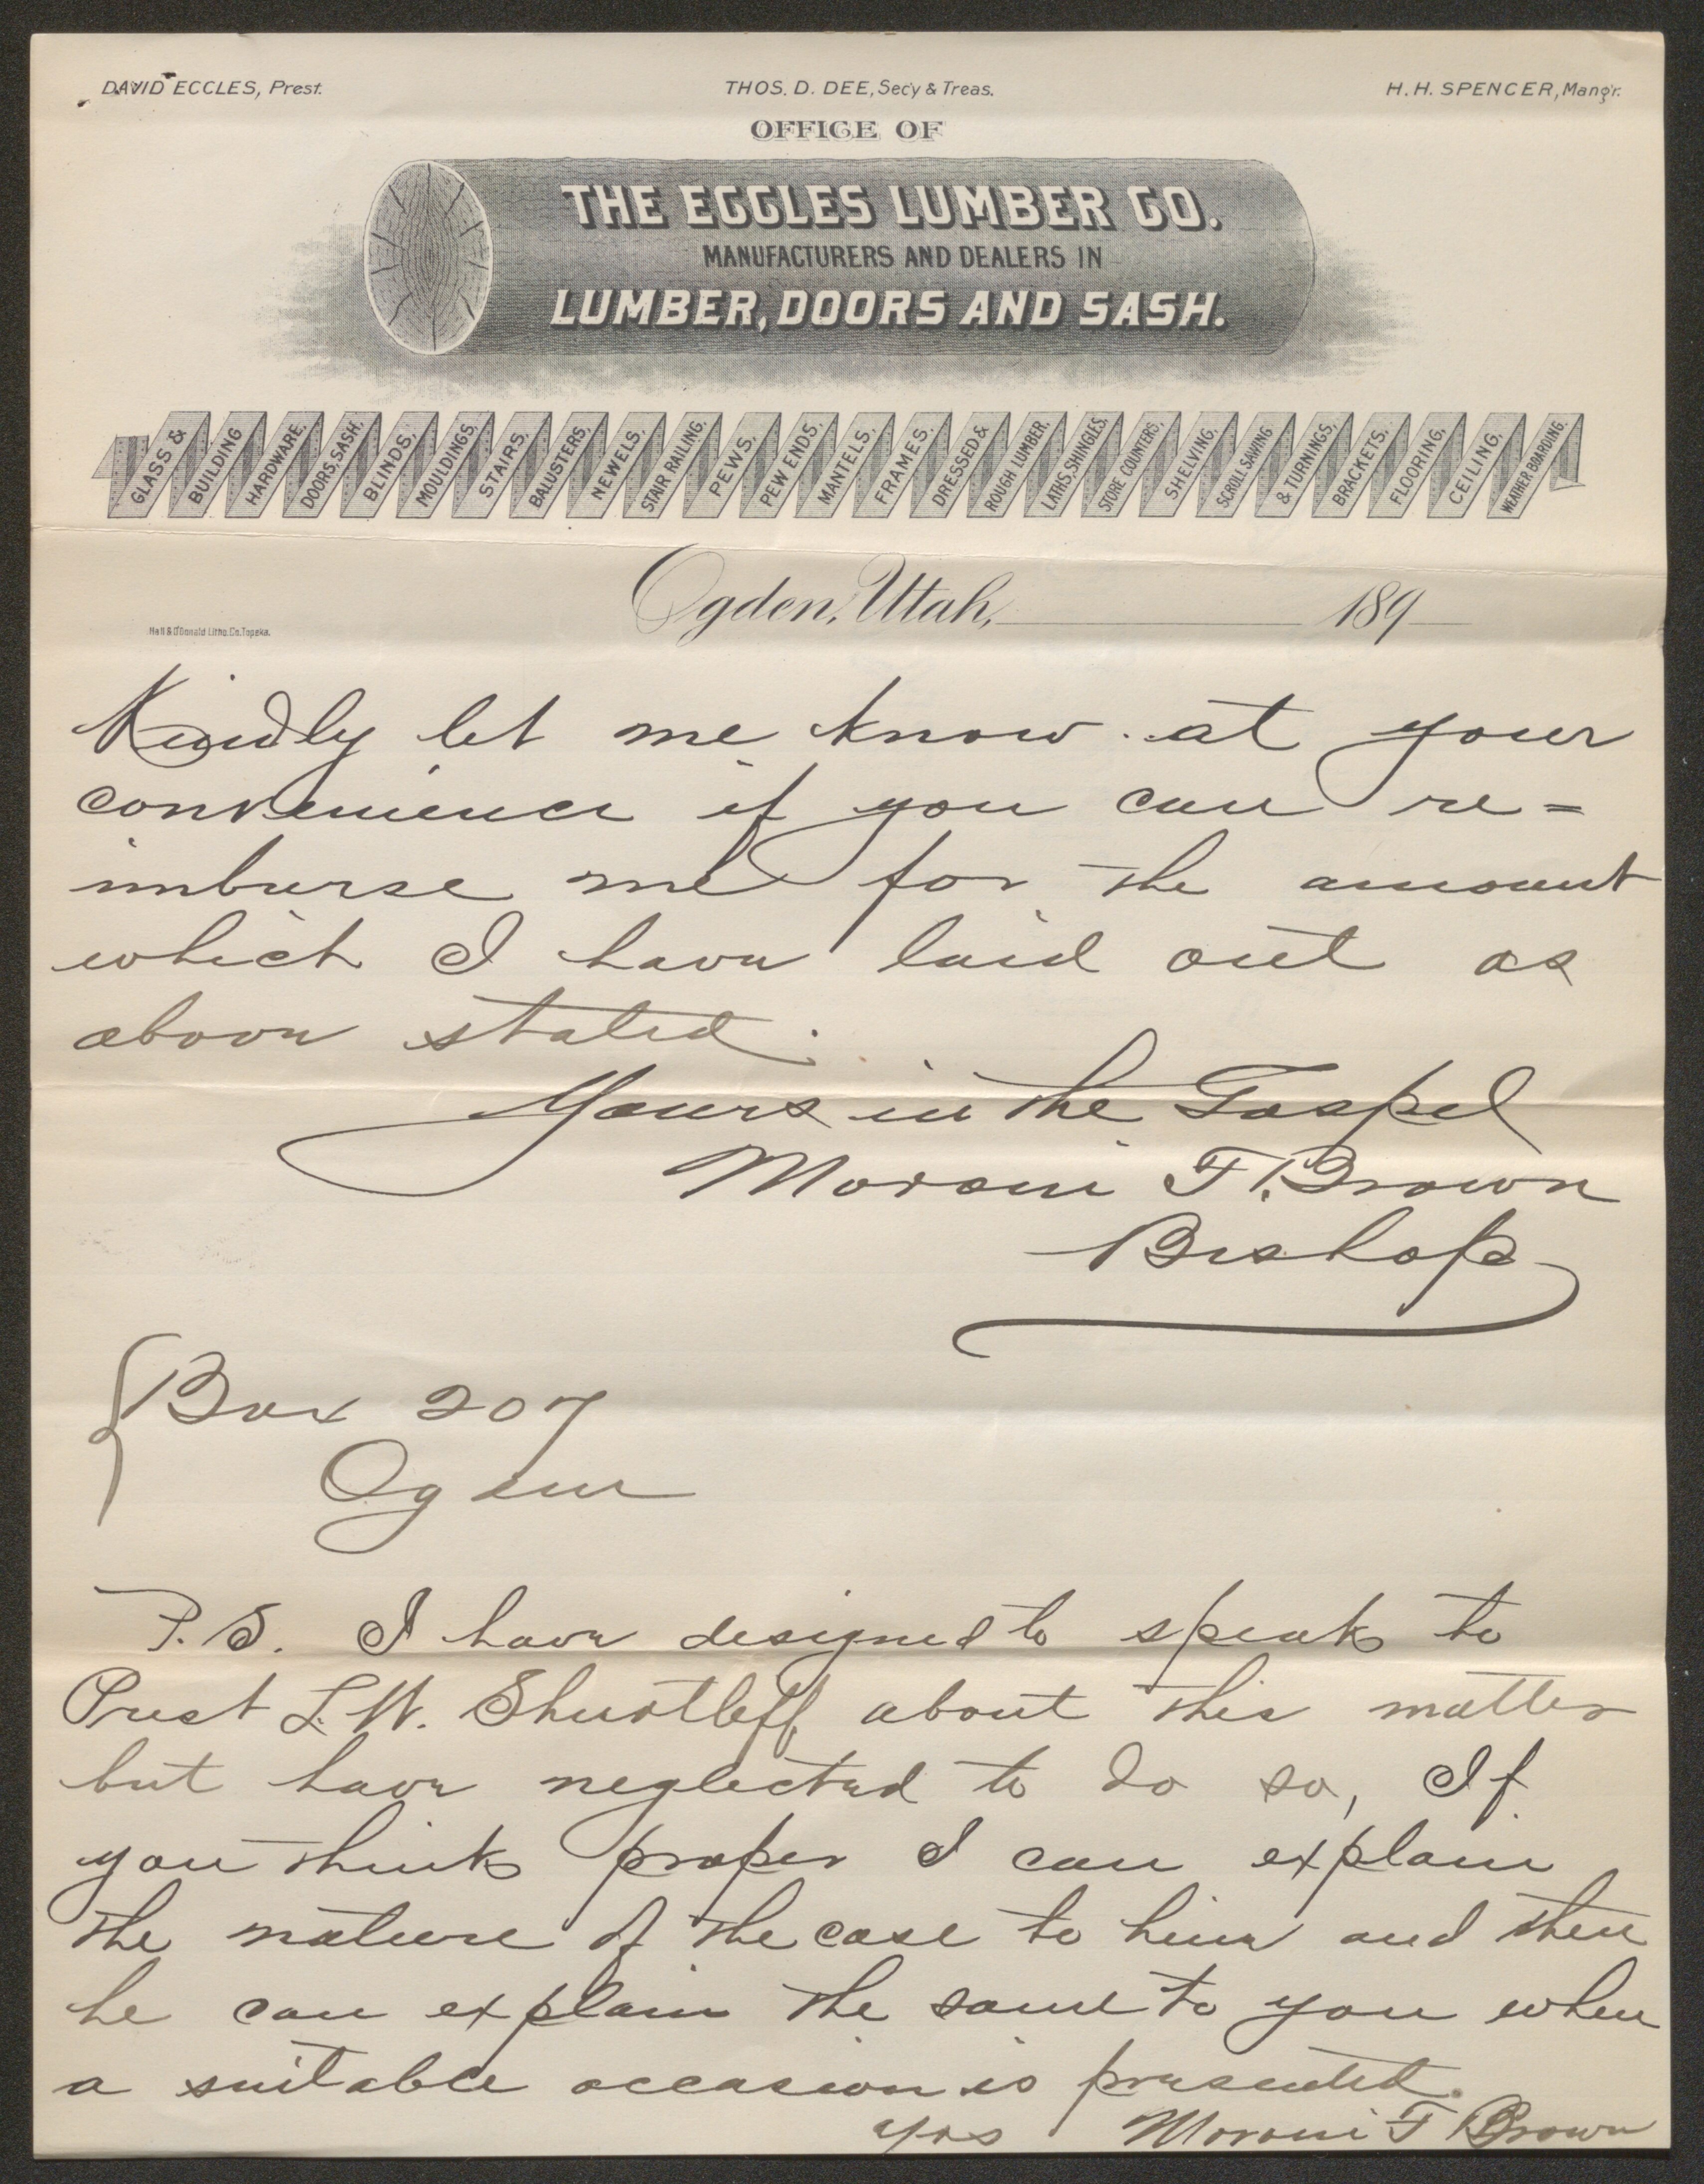 DAVID ECCLES, Prest.
THOS. D. DEE, Secy & Treas.
H. H. SPENCER, Mang'r.
OFFICE OF
THE ECCLES LUMBER CO.
MANUFACTURERS AND DEALERS IN
LUMBER, DOORS AND SASH.
GLASS & BUILDING HARDWARE. DOORS, SASH. BLINDS. MOULDINGS. STAIRS. BALUSTERS. NEWELS. STAIR RAILING. PEWS. PEW ENDS. MANTELS. FRAMES. DRESSED & ROUGH LUMBER. LATHS, SHINGLES. STORE COUNTERS. SHELVING. SCROLL SAWING & TURNINGS. BRACKETS. FLOORING. CEILING. WEATHER BOARDING.
Ogden, Utah, 189
Hall & O'Donald Litho. Co. Topeka.
Kindly let me know at your
convenience if you can re=
imburse me for the amount
which I have laid out as
above stated.
Yours in the Gospel
Moroni F. Brown
Bishop
Box 207
Ogden
P.S. I have designed to speak to
Prest L.W. Shurtleff about this matter
but have neglected to do so, If
you think proper I can explain
the nature of the case to him and then
he can explain the same to you when
a suitable occasion is presented.
Yos Moroni F Brown